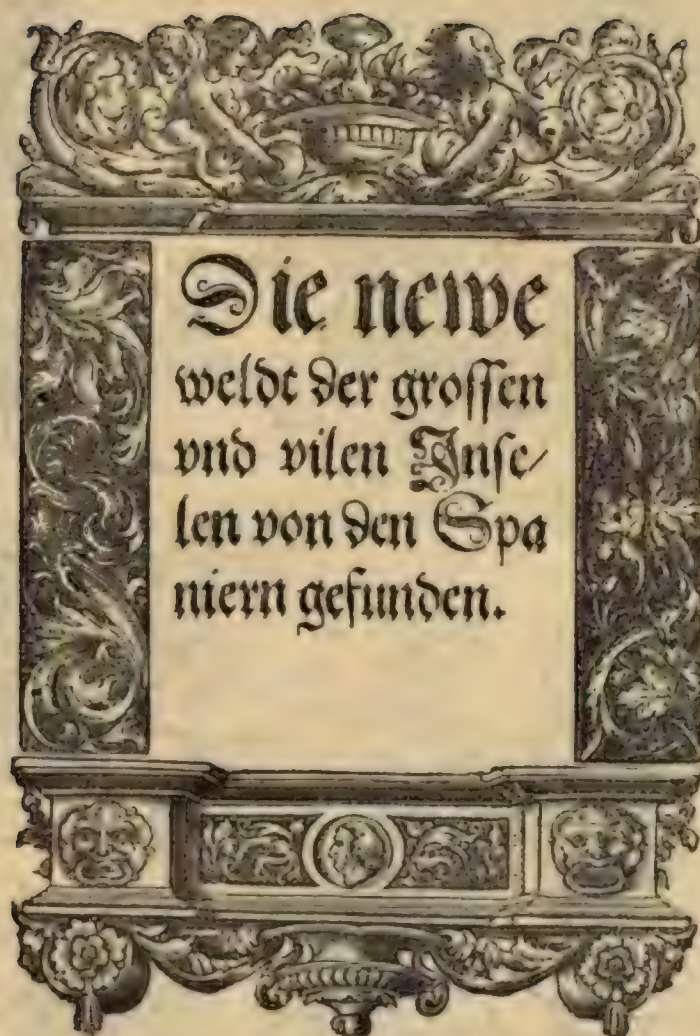 Die newe
weldt der grossen
vnd vilen Inse/
len von den Spa
niern gefunden.